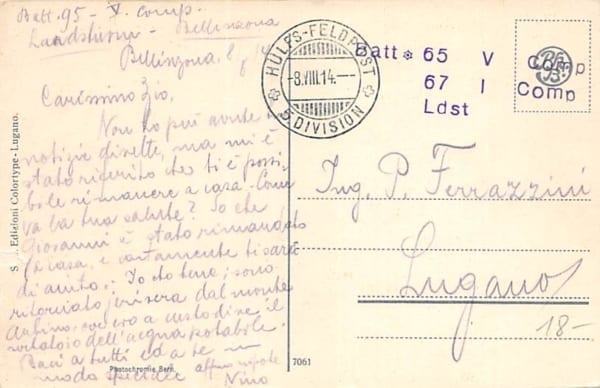 Batt. 95 - V. Comp.
Landsturm - Bellinzona
Bellinzona, 8/8 14
Carissimo Zio,
Non ho più avute
notizie dirette, ma mi è
stato riferito che ti è possi-
bile rimanere a casa. Come
va la tua salute? So che
Giovanni è stato rimandato
a casa, e certamente ti sarà
di aiuto. Io sto bene; sono
ritornato jeri sera dal monte
ove ero a custodire il
serbatoio dell'acqua potabile.
Baci a tutti ed a te in
modo speciale nipote
Nino
HÜLFS-FELDPOST
-8.VIII.14.-
5 DIVISION
Batt * 65 V Comp
67 I Comp
Ldst
Ing. P. Ferrazzini
Lugano
18-
Edizioni Colortype - Lugano.
Photochromie Bern.
7061